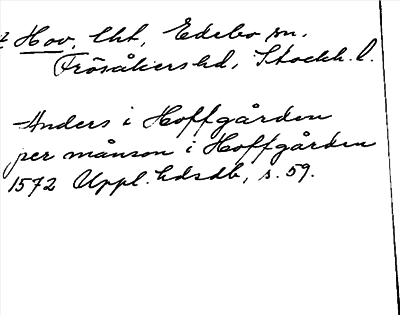 Hov, lht, Edebo sn.
Frösåkers hd, Stockh. l.
Anders i Hoffgården
per månson i Hoffgården
1572 Uppl. hdsdb, s. 59.